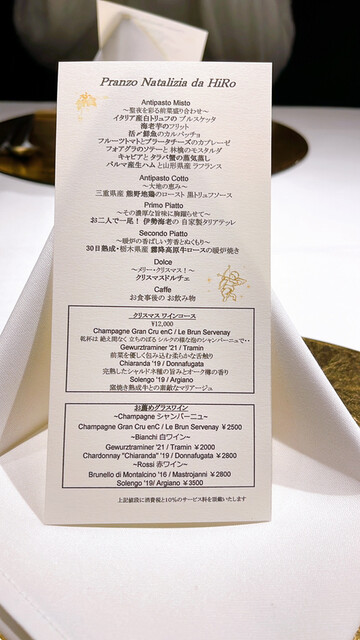 Pranzo Natalizia da HiRo
Antipasto Misto
～聖夜を彩る前菜盛り合わせ～
イタリア産白トリュフの ブルスケッタ
海老芋のフリット
活〆鰤魚のカルパッチョ
フルーツトマトとブラータチーズのカプレーゼ
フォアグラのソテーと 林檎のモスタルダ
キャビアと タラバ蟹の蒸気蒸し
パルマ産生ハム と山形県産 ラフランス
Antipasto Cotto
～大地の恵み～
三重県産 熊野地鶏のロースト 黒トリュフソース
Primo Piatto
～その濃厚な旨味に胸躍らせて～
お二人で一尾！ 伊勢海老の 自家製タリアテッレ
Secondo Piatto
～暖炉の香ばしい芳香とぬくもり～
30日熟成・栃木県産 霧降高原牛ロースの暖炉焼き
Dolce
～メリー・クリスマス！～
クリスマスドルチェ
Caffe
お食事後の お飲み物
クリスマス ワインコース
¥12,000
Champagne Gran Cru enC / Le Brun Servenay
乾杯は 絶え間なく 立ちのぼる シルクの様な泡のシャンパーニュで・・
Gewurztraminer '21 / Tramin
前菜を優しく包み込む柔らかな舌触り
Chiaranda '19 / Donnafugata
完熟したシャルドネ種の旨みとオーク樽の香り
Solengo '19 / Argiano
窯焼き熟成牛との素敵なマリアージュ
お薦めグラスワイン
~Champagne シャンパーニュ~
Champagne Gran Cru enC / Le Brun Servenay ¥2500
~Bianchi 白ワイン~
Gewurztraminer '21 / Tramin ¥2000
Chardonnay "Chiaranda" '19 / Donnafugata ¥2800
~Rossi 赤ワイン~
Brunello di Montalcino '16 / Mastrojanni ¥2800
Solengo '19/ Argiano ¥3500
上記値段に消費税と10%のサービス料を頂戴いたします